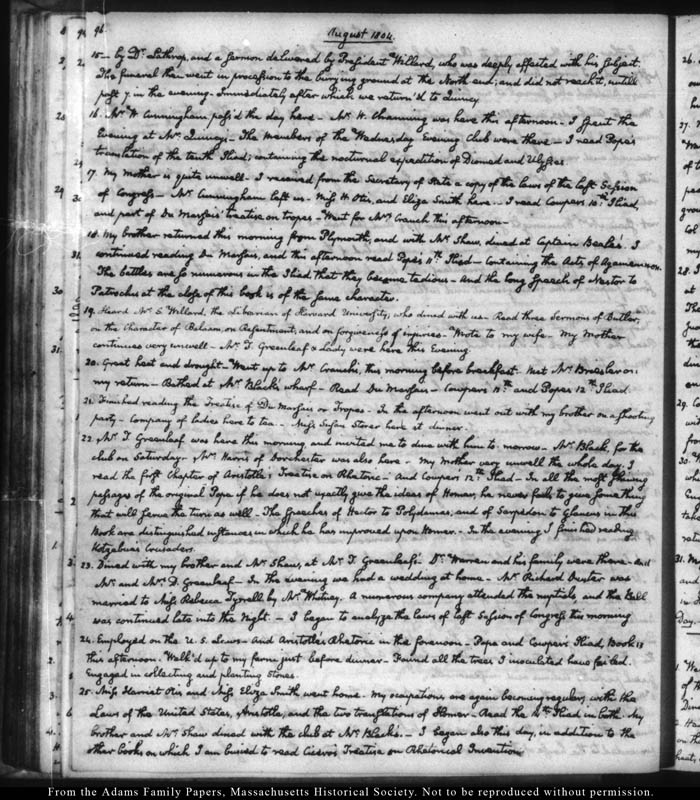 96.
August 1804.
15— by Dr. Lathrop, and a sermon delivered by President Willard, who was deeply affected with his subject.
The funeral then went in procession to the burying ground at the North end; and did not reach it, untill
past 7. in the evening. Immediately after which we return'd to Quincy
16. Mr. W Cunningham, pass'd the day here— Mr. H. Channing was here this afternoon— I spent the
Evening at Mr. Quincy's— The members of the Wednesday Evening Club were there— I read Pope's
translation of the tenth Iliad; containing the nocturnal expedition of Diomed and Ulysses.
17. My mother is quite unwell— I received from the Secretary of State a copy of the laws of the last Session
of Congress— Mr. Cunningham left us— Miss H Otis, and Eliza Smith here.— I read Cowpers 10th. Iliad,
and part of Du Marsais' treatise on tropes— Went for Mrs. Cranch this afternoon—
18. My brother returned this morning from Plymouth, and with Mr. Shaw, dined at Captain Beale's. I
continued reading Du Marsais, and this afternoon read Pope's 11th. Iliad— Containing the Acts of Agamemnon.
The battles are so numerous in the Iliad that they become tedious— And the long speech of Nestor to
Patroclus at the close of this book is of the same character.
19. Heard Mr. S. Willard, the Librarian of Harvard University, who dined with us. Read three Sermons of Butler,
on the Character of Balaam, on Resentment, and on forgiveness of injuries— Wrote to my wife— My Mother
continues very unwell— Mr. T. Greenleaf & Lady were here this Evening.
20. Great heat and drought— Went up to Mr. Cranch's, this morning before breakfast. Met Mr. Briesler on
my return— Bathed at Mr. Black's wharf— Read Du Marsais— Cowpers 11th. and Popes 12th. Iliad
21. Finished reading the Treatise of Du Marsais on Tropes— In the afternoon went out with my brother on a shooting
party— Company of ladies here to tea— Miss Susan Storer here at dinner.
22. Mr. T Greenleaf was here this morning and invited me to dine with him to-morrow— Mr. Black, for the
club on Saturday— Mr. Harris of Dorchester was also here— My Mother very unwell the whole day; I
read the first Chapter of Aristotle's Treatise on Rhetoric— And Cowpers 12th. Iliad— In all the most shining
passages of the original Pope if he does not exactly give the ideas of Homer, he never fails to give something
that will serve the turn as well— The speeches of Hector to Polydamas, and of Sarpedon to Glaucus in this
Book are distinguished instances in which he has improved upon Homer.— In the evening I finished reading
Kotzebues Crusaders.
23. Dined with my brother and Mr. Shaw, at Mr. T. Greenleaf's. Dr. Warren and his family were there— And
Mr. and Mrs. D. Greenleaf— In the evening we had a wedding at home— Mr. Richard Dexter was
married to Miss Rebecca Tyrrell by Mr. Whitney. A numerous company attended the nuptials, and the Ball
was continued late into the Night.— I began to analyze the laws of last Session of Congress this morning
24. Employed on the U. S. Laws— And Aristotle's Rhetoric in the forenoon— Pope and Cowper's Iliad, Book 13
this afternoon. Walk'd up to my farm just before dinner— Found all the trees I inoculated have failed.
Engaged in collecting and planting Stones.
25. Miss Harriet Otis and Miss Eliza Smith went home. My occupations are again becoming regular, with the
Laws of the United States, Aristotle, and the two translations of Homer— Read the 14th. Iliad in both. My
brother and Mr. Shaw dined with the club at Mr. Black's.— I began also this day, in addition to the
other books on which I am busied to read Cicero's Treatise on Rhetorical Invention.
From the Adams Family Papers, Massachusetts Historical Society. Not to be reproduced without permission.